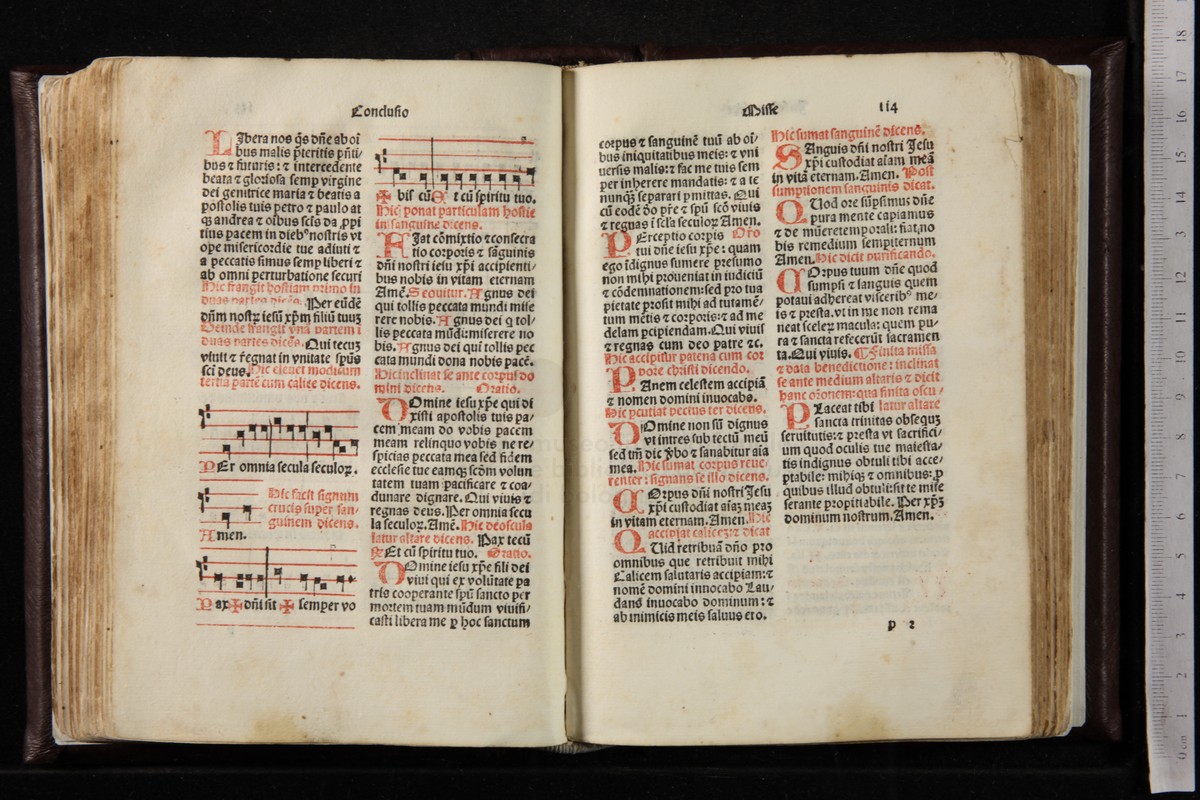 Conclusio
Libera nos q̃s dñe ab oĩ
bus malis p̃teritis p̃nti/
bus & futuris: & intercedente
beata & gloriosa semp virgine
dei genitrice maria & beatis a
postolis tuis petro & paulo at
q̃ andrea & oĩbus scĩs da ꝓpi
tius pacem in diebꝰ nostris vt
ope misericordie tue adiuti &
a peccatis simus semp liberi &
ab omni perturbatione securi
Hic frangit hostiam primo in
duas partes dicẽs. Per eũdẽ
dñm nostrꝫ iesũ xp̃m filiũ tuuꝫ
Deinde frangit vnã partem ĩ
duas partes dicẽs. Qui tecuꝫ
viuit & regnat in vnitate sp̃us
sci deus. Hic eleuet modicum
tertiã partẽ cum calice dicens.
Per omnia secula seculoꝝ.
Hic facit signum
crucis super san/
guinem dicens.
Amen.
Pax ✠ dñi sit ✠ semper vo
✠ bis cũ ℟ Et cũ spiritu tuo.
Hic ponat particulam hostie
in sanguine dicens.
Fiat cõmixtio & consecra
tio corporis & sãguinis
dñi nostri iesu xp̃i accipienti/
bus nobis in vitam eternam
Amẽ. Sequitur. Agnus dei
qui tollis peccata mundi mise
rere nobis. Agnus dei q̃ tol/
lis peccata mũdi: miserere no
bis. Agnus dei qui tollis pec
cata mundi dona nobis pacẽ.
Hic inclinat se ante corpus do
mini dicens. Oratio.
Domine iesu xp̃e qui di
xisti apostolis tuis pa/
cem meam do vobis pacem
meam relinquo vobis ne re/
spicias peccata mea sed fidem
ecclesie tue eamqꝫ scd̃m volun
tatem tuam pacificare & coa/
dunare dignare. Qui viuis &
regnas deus. Per omnia secu
la seculoꝝ. Amẽ. Hic deoscula
latur altare dicens. Pax tecũ
℟ Et cũ spiritu tuo. Oratio.
Domine iesu xp̃e fili dei
viui qui ex volũtate pa
tris cooperante sp̃u sancto per
mortem tuam mũdum viuifi/
casti libera me ꝑ hoc sanctum
Misse 114
corpus & sanguinẽ tuũ ab oĩ/
bus iniquitatibus meis: & vni
uersis malis: & fac me tuis sem
per inherere mandatis: & a te
nunqꝫ separari pmittas. Qui
cũ eodẽ deo p̃re & sp̃u scõ viuis
& regnas ĩ scl̃a seculoꝝ Amen.
Perceptio corpis Oro
tui dñe iesu xp̃e: quam
ego ĩdignus sumere presumo
non mihi proueniat in iudiciũ
& cõdemnationem: sed pro tua
pietate prosit mihi ad tutamẽ/
tum mẽtis & corporis: & ad me
delam pcipiendam. Qui viuis
& regnas cum deo patre &c.
Hic accipitur patena cum cor
pore christi dicendo.
Panem celestem accipiã
& nomen domini inuocabo.
Hic pcutiat pectus ter dicens.
Domine non sũ dignus
vt intres sub tectũ meũ
sed tm̃ dic v̾bo & sanabitur aĩa
mea. Hic sumat corpus reue/
renter: signans se illo dicens.
Corpus dñi nostri Jesu
xp̃i custodiat aĩaꝫ meaꝫ
in vitam eternam. Amen. Hic
accipiat calicẽ: & dicat
Quid retribuã dño pro
omnibus que retribuit mihi
Calicem salutaris accipiam: &
nomẽ domini innocabo Lau/
dans inuocabo dominum: &
ab inimicis meis saluus ero.
Hic sumat sanguinẽ dicens.
Sanguis dñi nostri Jesu
xp̃i custodiat aĩam meã
in vitã eternam. Amen. Post
sumptionem sanguinis dicat.
Quod ore sũpsimus dñe
pura mente capiamus
& de mũere temporali: fiat no
bis remedium sempiternum
Amen. Hic dicit purificando.
Corpus tuum dñe quod
sumpsi & sanguis quem
potaui adhereat visceribꝰ me/
is & presta. vt in me non rema
neat sceleꝝ macula: quem pu/
ra & sancta refecerũt sacramen
ta. Qui viuis. ¶ Finita missa
& data benedictione: inclinat
se ante medium altaris & dicit
hanc or̃onem: qua finita oscu/
Placeat tibi latur altare
sancta trinitas obsequiũ
seruitutis: & presta vt sacrifici/
um quod oculis tue maiesta/
tis indignus obtuli tibi acce/
ptabile: mihiqꝫ & omnibus: ꝓ
quibus illud obtuli: sit te mise
serante propitiabile. Per xp̃ꝫ
dominum nostrum. Amen.
p 2